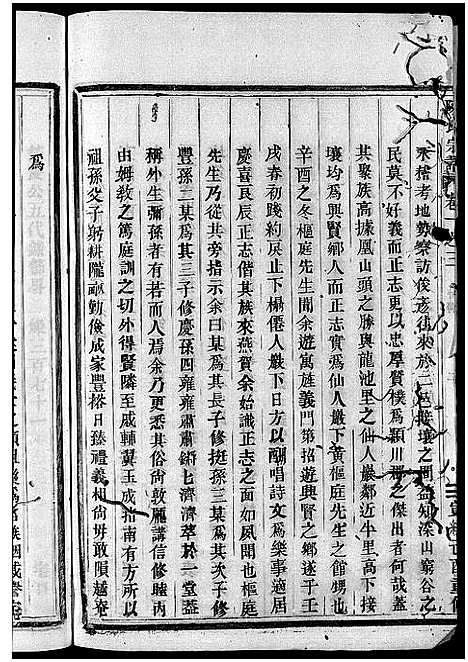 水稽考地勢察訪俟之往來於二邑接壤之間益知深山窮谷之
民莫不好義而正志更以忠厚質樸爲潁川郡之傑出者何哉蓋
其聚族高據凰山頭之勝與龍池里之仙人巖鄰近牛里高下村
壤均爲興賢鄉人而正志實爲仙人巖下黃樞庭先生之館甥也
辛酉之冬樞庭先生聞余遊寓旌義門第招遊興賢之鄉遂于壬
戌春初踐約戾止下榻僊人巖下日方以酬唱詩文爲樂事適居
慶喜良辰正志偕其族來燕賀余始識正志之面如夙聞也樞庭
先生乃從其旁指示余曰某爲其長子修挺孫三某爲其次子修
豐孫三某爲其三子修慶孫四雍雍肅肅鏘鏘七濟濟萃於一堂蓋
稱外生彌孫者有若而人焉余乃更悉其俗尙敦龎講信修睦丙
由姆教之篤庭訓之切外得賢隣至戚輔翼玉成指南有方所以
祖孫父子躬耕隴畝勤儉成家豐於日臻禮義相尙毋敢隕越竟
爲